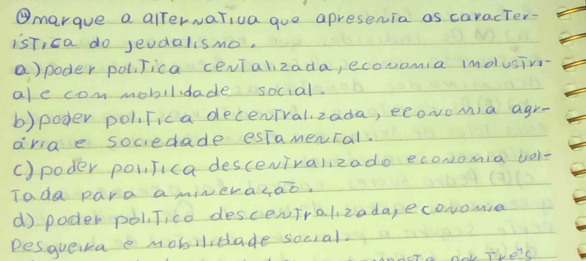 9)marque a alternativa que apresenta as caracter-
ística do feudalismo.
a)poder política centalizada, economia industri-
al e com mobilidade social.
b)poder política decentralizada, economia agr-
ária e sociedade estamental.
c)poder política descentralizado economia vol-
tada para a mineração.
d) poder político descentralizada, economia
pesqueira e mobilidade social.